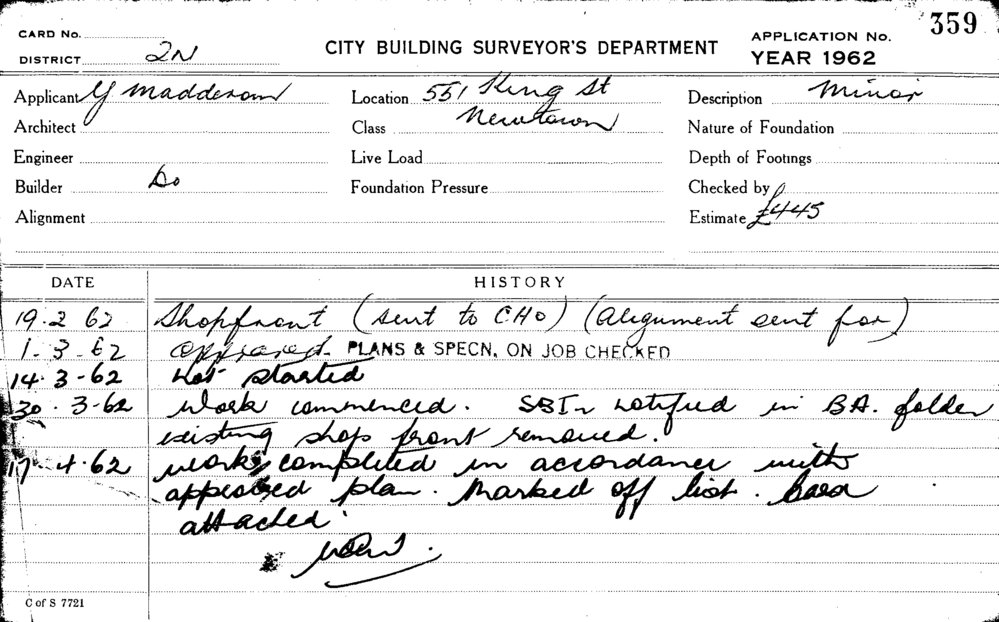 359
CARD No.
DISTRICT 2N
CITY BUILDING SURVEYOR'S DEPARTMENT
APPLICATION No.
YEAR 1962
Applicant Y Madderom
Location 551 King St
Description Minor
Architect
Class Newtown
Nature of Foundation
Engineer
Live Load
Depth of Footings
Builder Do
Foundation Pressure
Checked by
Alignment
Estimate £445
DATE
HISTORY
19.2 62 Shopfront (sent to CHO) (Alignment sent for)
1.3.62 approved. PLANS & SPECN. ON JOB CHECKED
14.3-62 Not started
30.3-62 Work commenced. SBI notified in BA. folder
existing shop front removed.
17.4.62 work completed in accordance with
approved plan. Marked off list. Card
attached.
C of S 7721